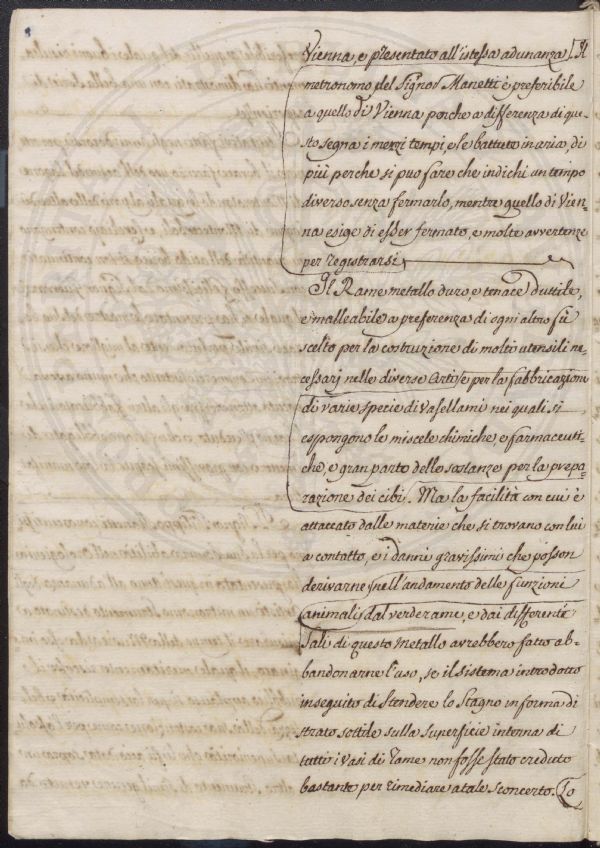 Vienna, e presentato all'istessa adunanza. Il
metronomo del Signor Manetti è preferibile
a quello di Vienna perche a differenza di que-
sto segna i mezzi tempi, e le battute in aria, di
più perche si puo fare che indichi un tempo
diverso senza fermarlo, mentre quello di Vien-
na esige di esser fermato, e molte avvertenze
per registrarsi
Il Rame metallo duro, e tenace duttile,
e malleabile a preferenza di ogni altro fù
scelto per la costruzione di molti utensili ne-
cessarj nelle diverse Arti, e per la fabbricazione
di varie specie di Vasellami nei quali si
espongono le miscele chimiche, e farmaceuti-
che, e gran parte delle sostanze per la prepa-
razione dei cibi. Ma la facilità con cui è
attaccato dalle materie che si trovano con lui
a contatto, e i danni gravissimi che posson
derivarne nell'andamento delle funzioni
animali dal verderame, e dai differenti
Sali di questo Metallo avrebbero fatto ab-
bandonarne l'uso, se il sistema introdotto
in seguito di stendere lo Stagno in forma di
strato sottile sulla Superficie interna di
tutti i Vasi di rame non fosse stato creduto
bastante per rimediare a tale sconcerto. Lo